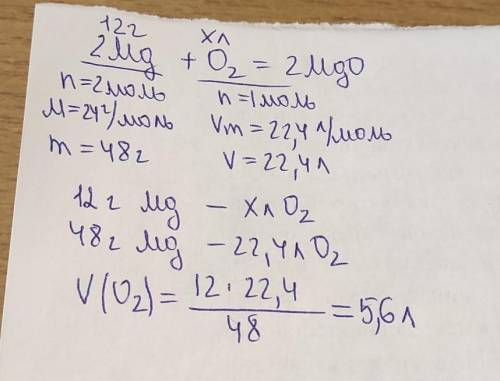 12г xл
2Mg + O₂ = 2MgO
n=2моль n=1моль
M=24г/моль Vm=22,4 л/моль
m=48г V=22,4л
12г Mg – xл O₂
48г Mg – 22,4л O₂
V(O₂)= 12·22,4 / 48 = 5,6л